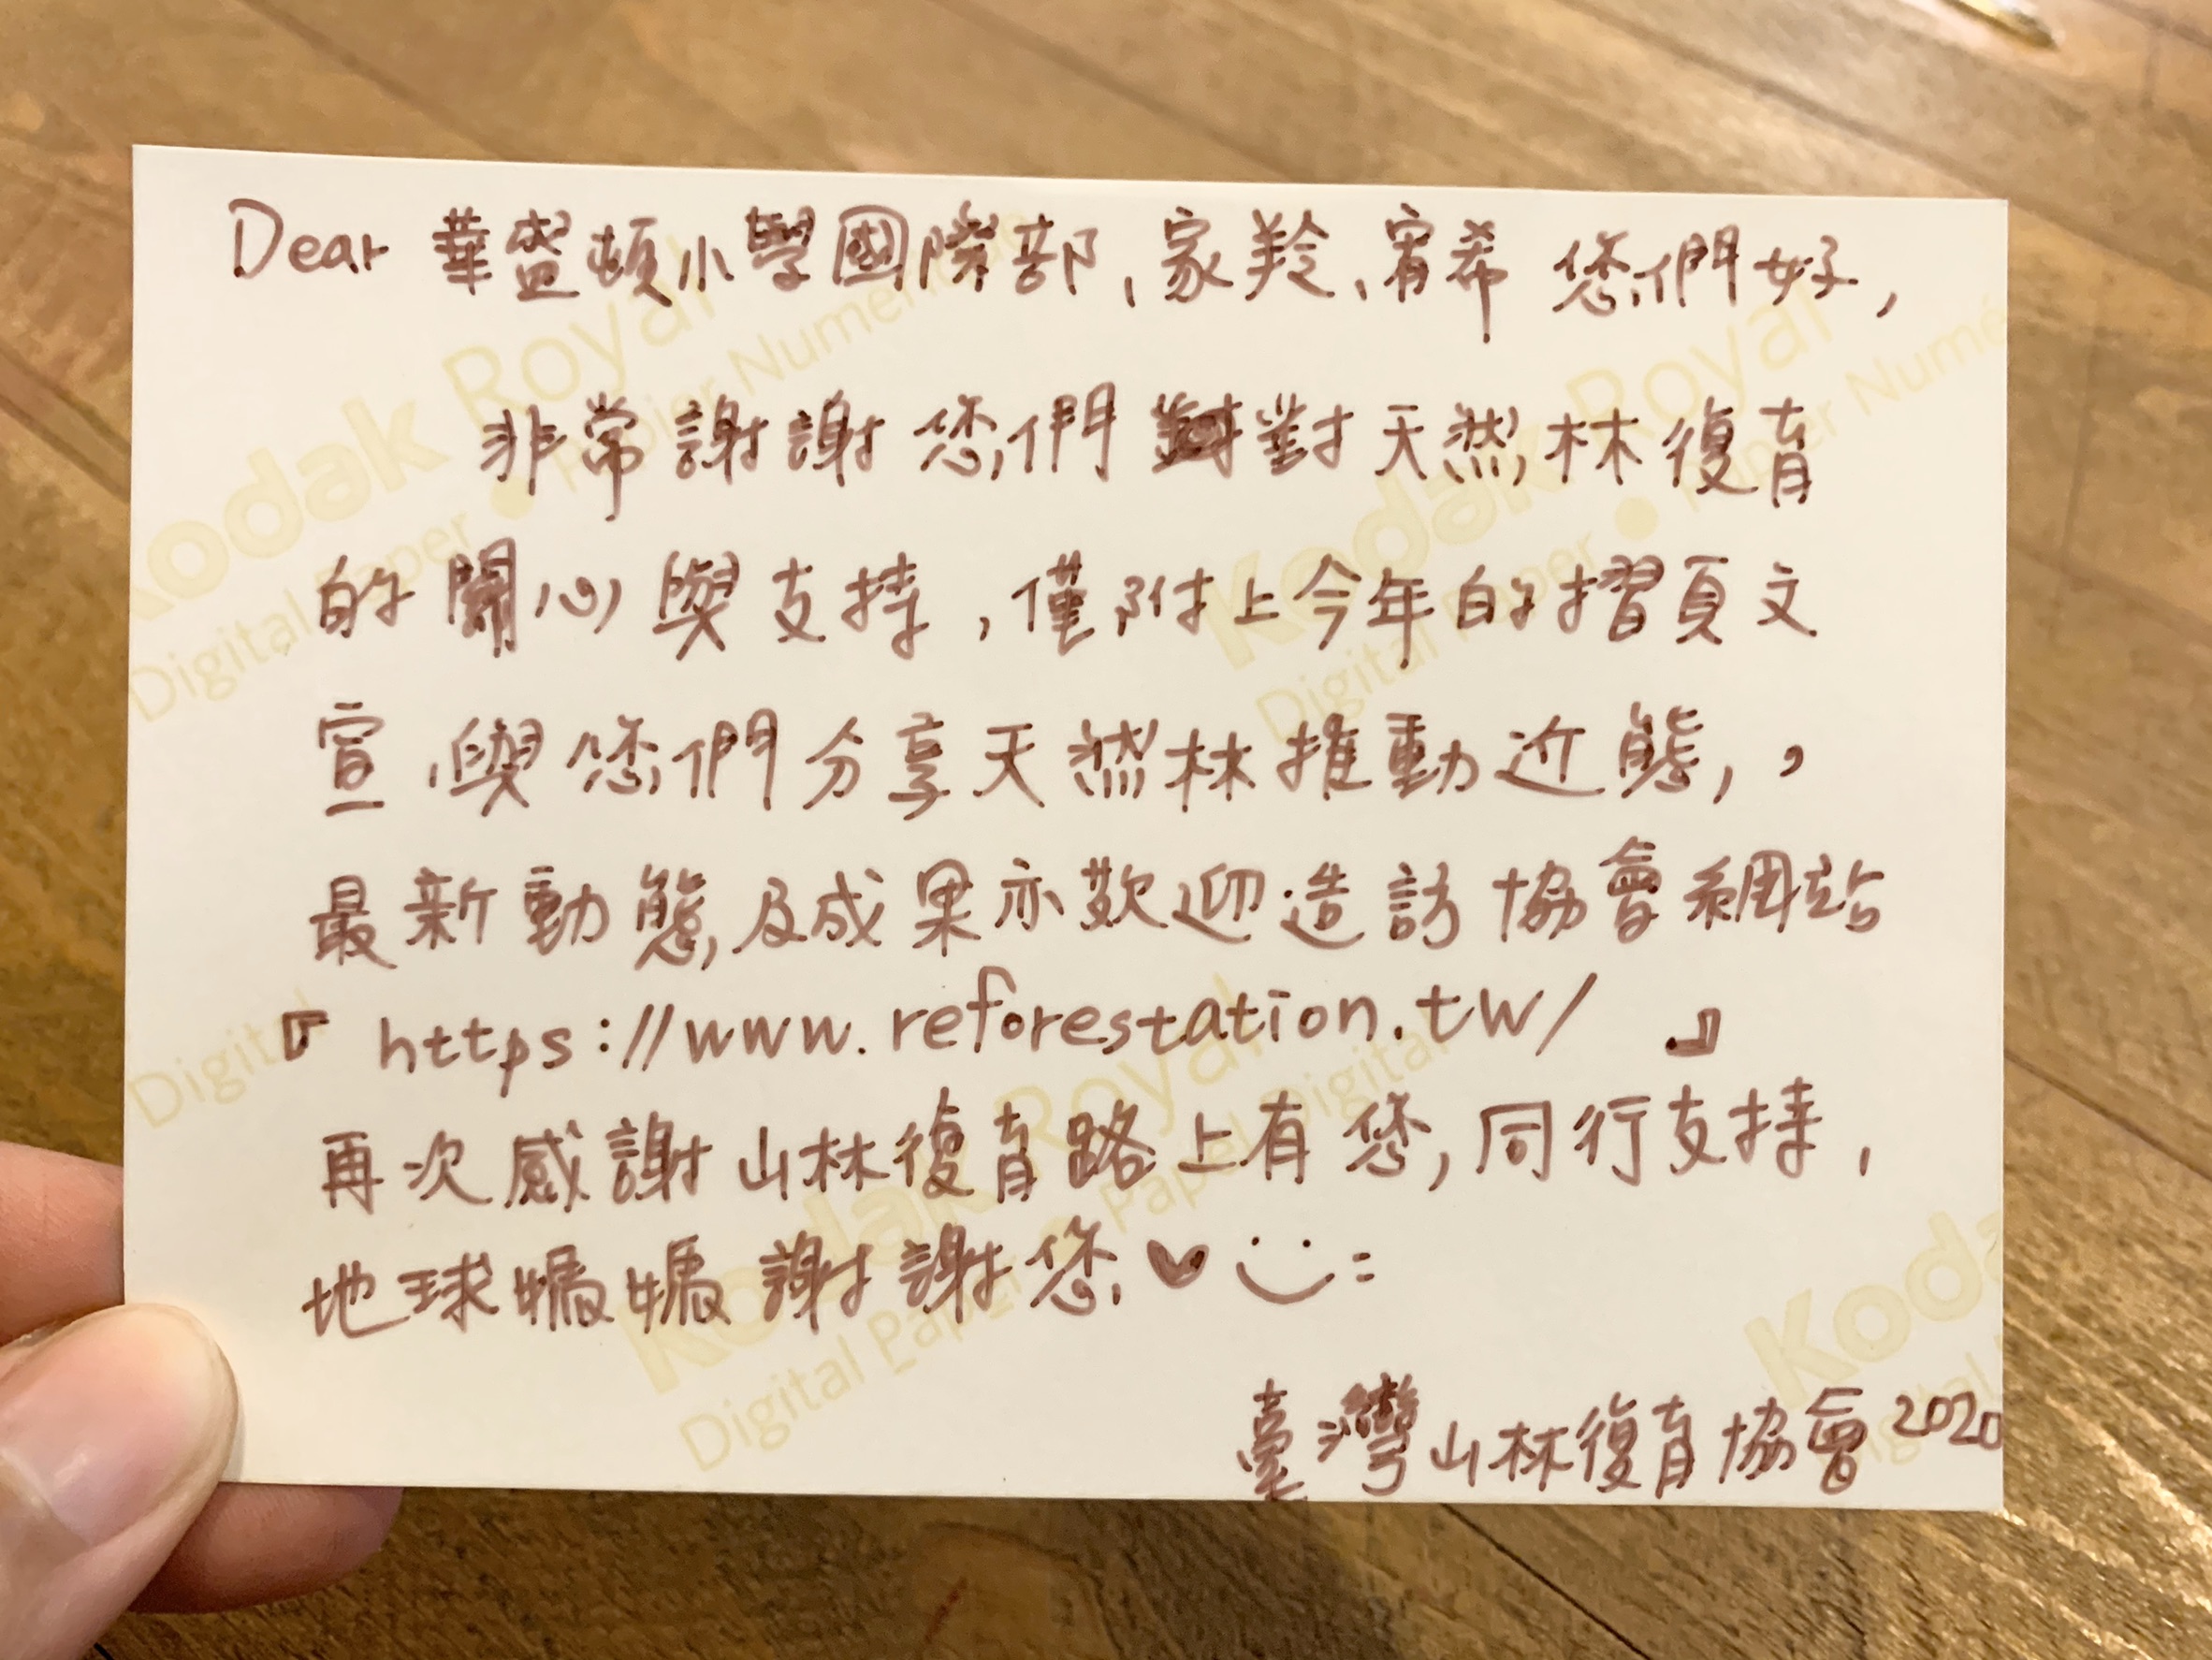 Dear 華盛頓小學國際部、家羚、宥希 您們好,
非常謝謝您們對天然林復育
的關心與支持,僅附上今年的摺頁文
宣,與您們分享天然林推動近態,,
最新動態及成果亦歡迎造訪協會網站
『 https://www.reforestation.tw/ 』
再次感謝山林復育路上有您,同行支持,
地球媽媽謝謝您
臺灣山林復育協會 2020
Kodak Royal
Digital Paper • Papier Numérique
Kodak Royal
Digital Paper • Papier Numé
Digital
Kodak Royal
Digital Paper
Paper Digital
Koda